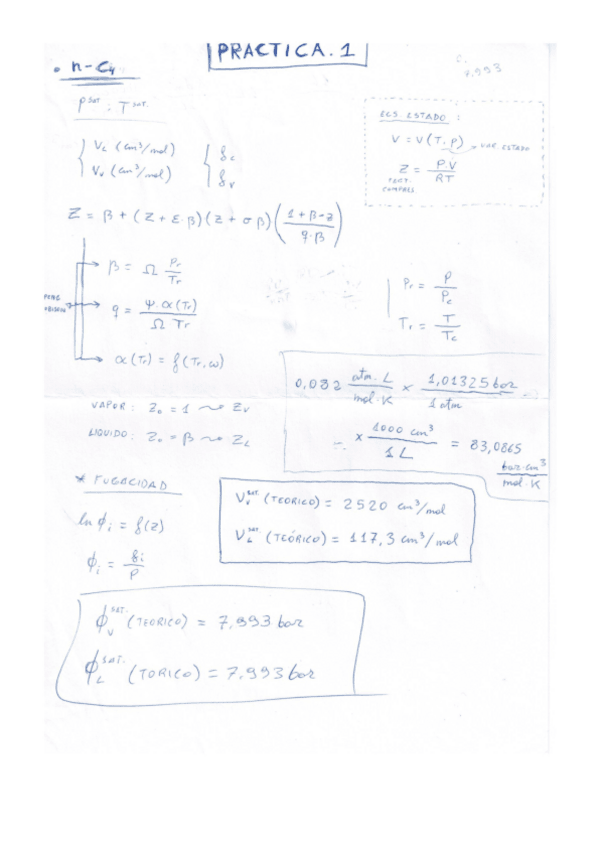 PRACTICA. 1
• n-C₄
7,993
P^SAT. ; T^SAT.
ECS. ESTADO :
V = V(T, P) → VAR. ESTADO
Z = PV / RT
FACT. COMPRES.
V_L (cm³/mol)
V_V (cm³/mol)
f_L
f_V
Z = β + (Z + ε·β)(Z + σβ)((1 + β - z) / (q·β))
β = Ω Pr / Tr
q = Ψ·α(Tr) / Ω Tr
α(Tr) = f(Tr, ω)
PENG
Pr = P / Pc
Tr = T / Tc
0,082 atm·L / mol·K × 1,01325 bar / 1 atm
× 1000 cm³ / 1 L = 83,0865 bar·cm³ / mol·K
VAPOR : Z₀ = 1 ⇝ Z_V
LIQUIDO : Z₀ = β ⇝ Z_L
* FUGACIDAD
ln ϕi = f(z)
ϕi = fi / P
V_V^SAT. (TEORICO) = 2520 cm³/mol
V_L^SAT. (TEÓRICO) = 117,3 cm³/mol
ϕ_V^SAT. (TEORICO) = 7,993 bar
ϕ_L^SAT. (TORICO) = 7,993 bar